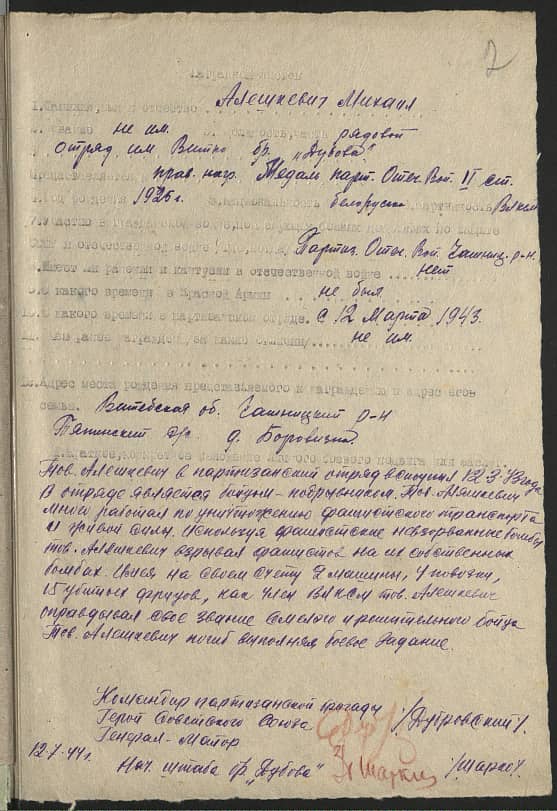 2
Наградной листок
Алешкевич Михаил
1. Фамилия, имя и отчество
2. Звание не им. 3. Должность, часть рядовой
отряд им. Витко бр. "Дубова"
Представляется к прав. наг. Медаль парт. Отеч. Вой. II ст.
4. Год рождения 1926 г. 5. Национальность белорусс 6. Партийность ВЛКСМ
7. Участие в гражданской войне, последующих боевых действиях по защите
СССР и отечественной войне Партиз. Отеч. Вой. Чашниц. р-н.
8. Имеет ли ранения и контузии в отечественной войне нет
9. С какого времени в Красной Армии не был
10. С какого времени в партизанском отряде. С 12 Марта 1943.
11. Чем ранее награжден, за какие отличия не им.
12. Адрес места рождения представляемого к награждению и адрес его
семьи. Витебская об. Чашницкий р-н
с/с. д.
Тов. Алешкевич в партизанский отряд вступил 12.3.43 года
В отряде является подрывником. Тов. Алешкевич
много работал по уничтожению фашистского транспорта
и живой силы. Используя фашистские невзорванные бомбы
тов. Алешкевич взрывал фашистов на их собственных
бомбах. Имея на своем счету 2 машины, 4 повозки,
15 убитых фрицов, как член ВЛКСМ тов. Алешкевич
оправдывал свое звание смелого и решительного бойца
Тов. Алешкевич погиб выполняя боевое задание.
Командир партизанской бригады
Герой Советского Союза /Дубровский/.
Генерал-Майор
12.7.44 г.
Нач. штаба бр. "Дубова" /Шарко/.